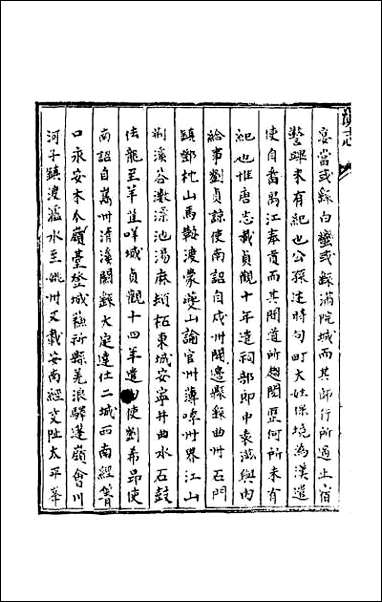 滇志
宴當或繇白蠻或繇滿院城而其師行所過止宿
鑿𫎇未有紀也公孫述時句町大姓保境為漢遣
使自番禺江奉貢而其間道所趨關亞何所未有
紀也惟唐志載貞觀十年遣祠部郎中袁滋與內
給事劉貞諒使南詔自戎州開邊縣繇曲州石門
鎮鄧枕山馬鞍渡蒙夔山諭官川薄㗖州界江山
荆溪谷澂漾池湯麻頓柘東城安寧井曲水石鼓
佉龍至羊苴咩城貞觀十四年遣使劉希昂使
南詔自嶲州清溪關繇大定達仕二城西南經菁
口永安木今嶺臺登城蘇祁縣羌浪驛蓬嶺會川
河子鎮渡瀘水至姚州又載安南經交阯太平華